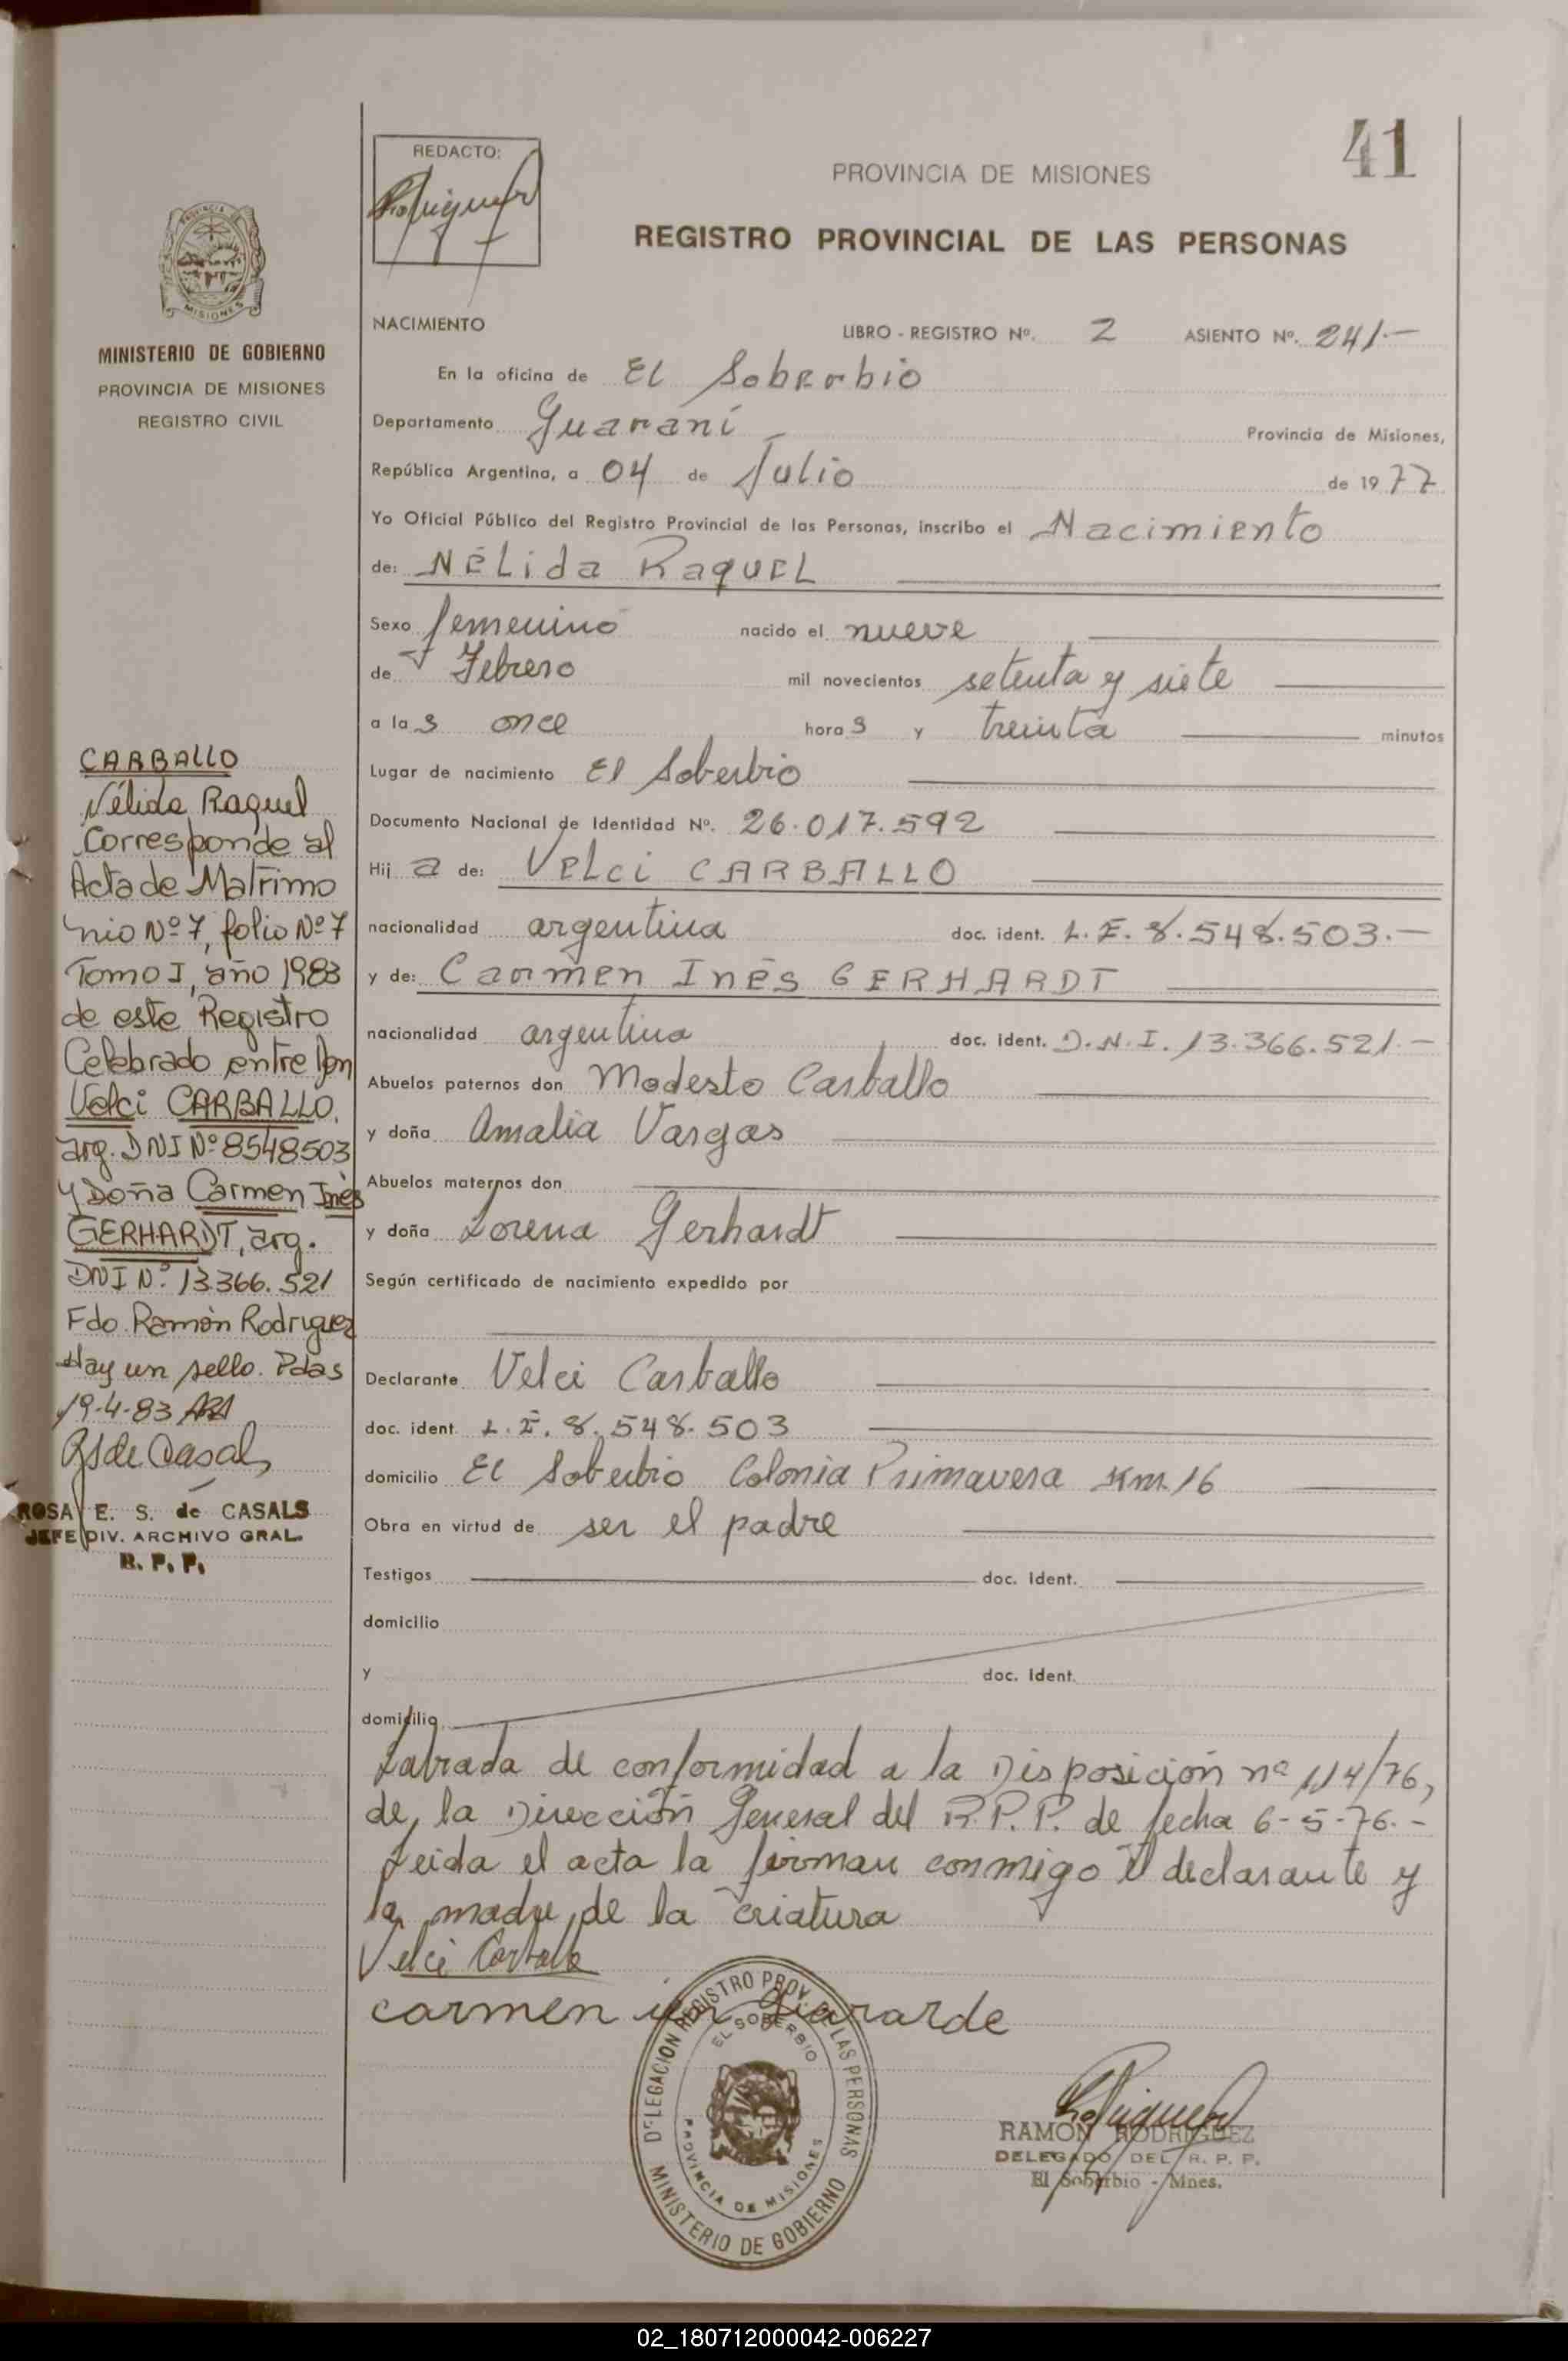 41
REDACTO:
PROVINCIA DE MISIONES
REGISTRO PROVINCIAL DE LAS PERSONAS
MISIONES
MINISTERIO DE GOBIERNO
PROVINCIA DE MISIONES
REGISTRO CIVIL
NACIMIENTO
LIBRO - REGISTRO Nº. 2 ASIENTO Nº. 241.-
En la oficina de El Soberbio
Departamento Guaraní - Provincia de Misiones,
República Argentina, a 04 de Julio de 1977
Yo Oficial Público del Registro Provincial de las Personas, inscribo el Nacimiento
de: Nélida Raquel
Sexo femenino nacido el nueve
de Febrero mil novecientos setenta y siete
a las once horas y treinta minutos
Lugar de nacimiento El Soberbio
Documento Nacional de Identidad Nº. 26.017.592
Hija de: Velci CARBALLO
nacionalidad argentina doc. ident. L.E. 8.548.503.-
y de: Carmen Inés GERHARDT
nacionalidad argentina doc. ident. D.N.I. 13.366.521.-
Abuelos paternos don Modesto Carballo
y doña Amalia Vargas
Abuelos maternos don
y doña Lorena Gerhardt
Según certificado de nacimiento expedido por
Declarante Velci Carballo
doc. ident. L.E. 8.548.503
domicilio El Soberbio Colonia Primavera Km. 16
Obra en virtud de ser el padre
Testigos doc. Ident.
domicilio
y doc. Ident.
domicilio
Labrada de conformidad a la Disposición nº 114/76,
de la Dirección General del R.P.P. de fecha 6-5-76.-
Leida el acta la firman conmigo el declarante y
la madre de la criatura
Velci Carballo
carmen
CARBALLO
Nélida Raquel
Corresponde al
Acta de Matrimo
nio Nº 7, folio Nº 7
Tomo I, año 1983
de este Registro
Celebrado entre Don
Velci CARBALLO,
arg. DNI Nº 8548503
y Doña Carmen Inés
GERHARDT, arg.
DNI Nº 13.366.521
Fdo. Ramón Rodriguez
Hay un sello. Pdas
19-4-83
ROSA E. S. de CASALS
JEFE DIV. ARCHIVO GRAL.
R. P. P.
DELEGACION REGISTRO PROV. DE LAS PERSONAS
EL SOBERBIO
PROVINCIA DE MISIONES
MINISTERIO DE GOBIERNO
RAMON RODRIGUEZ
DELEGADO DEL R. P. P.
El Soberbio - Mnes.
02_180712000042-006227